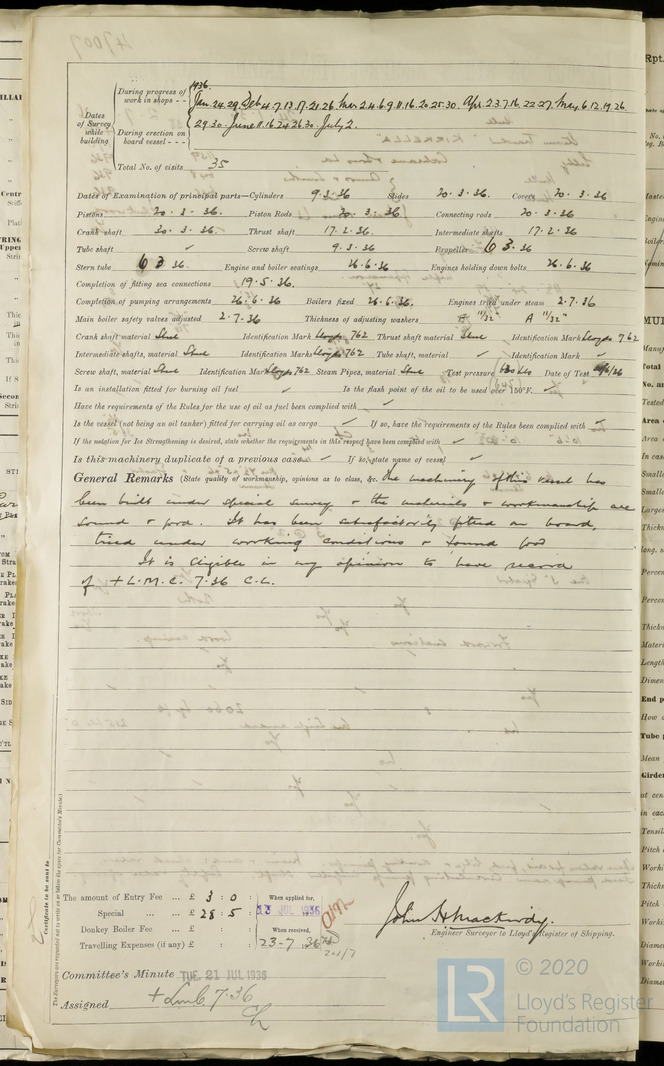 During progress of work in shops - - 1936. Jan. 24. 29. Feb 4. 7. 13. 17. 21. 26. Mar 2. 4. 6. 9. 11. 16. 20. 25. 30. Apr. 2. 3. 7. 16. 22. 27. May 6. 12. 19. 26.
Dates of Survey while building
During erection on board vessel - - - 29. 30. June 11. 16. 24. 26. 30. July 2.
Total No. of visits 35
Dates of Examination of principal parts—Cylinders 9.3.36 Slides 20.3.36 Covers 20.3.36
Pistons 20.3.36. Piston Rods 20.3.36 Connecting rods 20.3.36
Crank shaft 30.3.36. Thrust shaft 17.2.36 Intermediate shafts 17.2.36
Tube shaft ✓ Screw shaft 9.3.36 Propeller 6 3.36
Stern tube 6 3 36 Engine and boiler seatings 26.6.36 Engines holding down bolts 26.6.36
Completion of fitting sea connections 19.5.36.
Completion of pumping arrangements 26.6.36 Boilers fixed 26.6.36. Engines tried under steam 2.7.36
Main boiler safety valves adjusted 2.7.36 Thickness of adjusting washers A 11/32" A 11/32"
Crank shaft material Steel Identification Mark Lloyds 762 Thrust shaft material Steel Identification Mark Lloyds 762
Intermediate shafts, material Steel Identification Marks Lloyds 762 Tube shaft, material ✓ Identification Mark ✓
Screw shaft, material Steel Identification Mark Lloyds 762 Steam Pipes, material Steel Test pressure Date of Test
Is an installation fitted for burning oil fuel ✓ Is the flash point of the oil to be used over 150°F. ✓
Have the requirements of the Rules for the use of oil as fuel been complied with ✓
Is the vessel (not being an oil tanker) fitted for carrying oil as cargo ✓ If so, have the requirements of the Rules been complied with ✓
If the notation for Ice Strengthening is desired, state whether the requirements in this respect have been complied with ✓
Is this machinery duplicate of a previous case ✓ If so, state name of vessel ✓
General Remarks (State quality of workmanship, opinions as to class, &c. The machinery of this vessel has
been built under special survey & the materials & workmanship are
sound & good. It has been satisfactorily fitted on board,
tried under working conditions & found good
It is eligible in my opinion to have record
of + L.M.C. 7.36 C.L.
Certificate to be sent to
The Surveyors are requested not to write on or below the space for Committee's Minute.
The amount of Entry Fee ... £ 3 : 0 : When applied for,
Special ... ... £ 28 : 5 : 13 JUL 1936
Donkey Boiler Fee ... £ : : When received,
Travelling Expenses (if any) £ : : 23-7 1936
John H Mackirdy.
Engineer Surveyor to Lloyd's Register of Shipping.
Committee's Minute TUE. 21 JUL 1936
Assigned + LMC 7.36
© 2020
LR
Lloyd's Register
Foundation